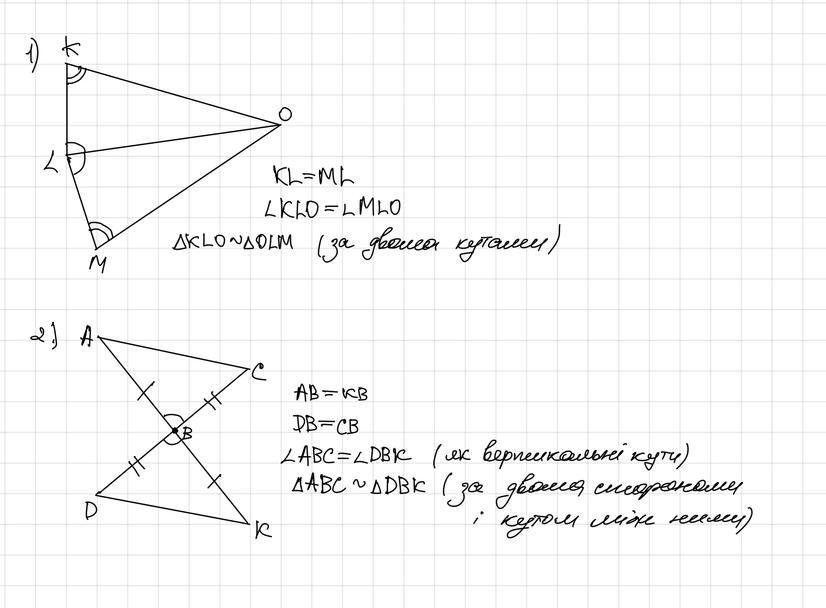 1) K
O
L
KL=ML
∠KLO=∠MLO
△KLO~△OLM (за двома кутами)
M
2) A
C
AB=KB
DB=CB
B
∠ABC=∠DBK (як вертикальні кути)
△ABC~△DBK (за двома сторонами
D
і кутом між ними)
K